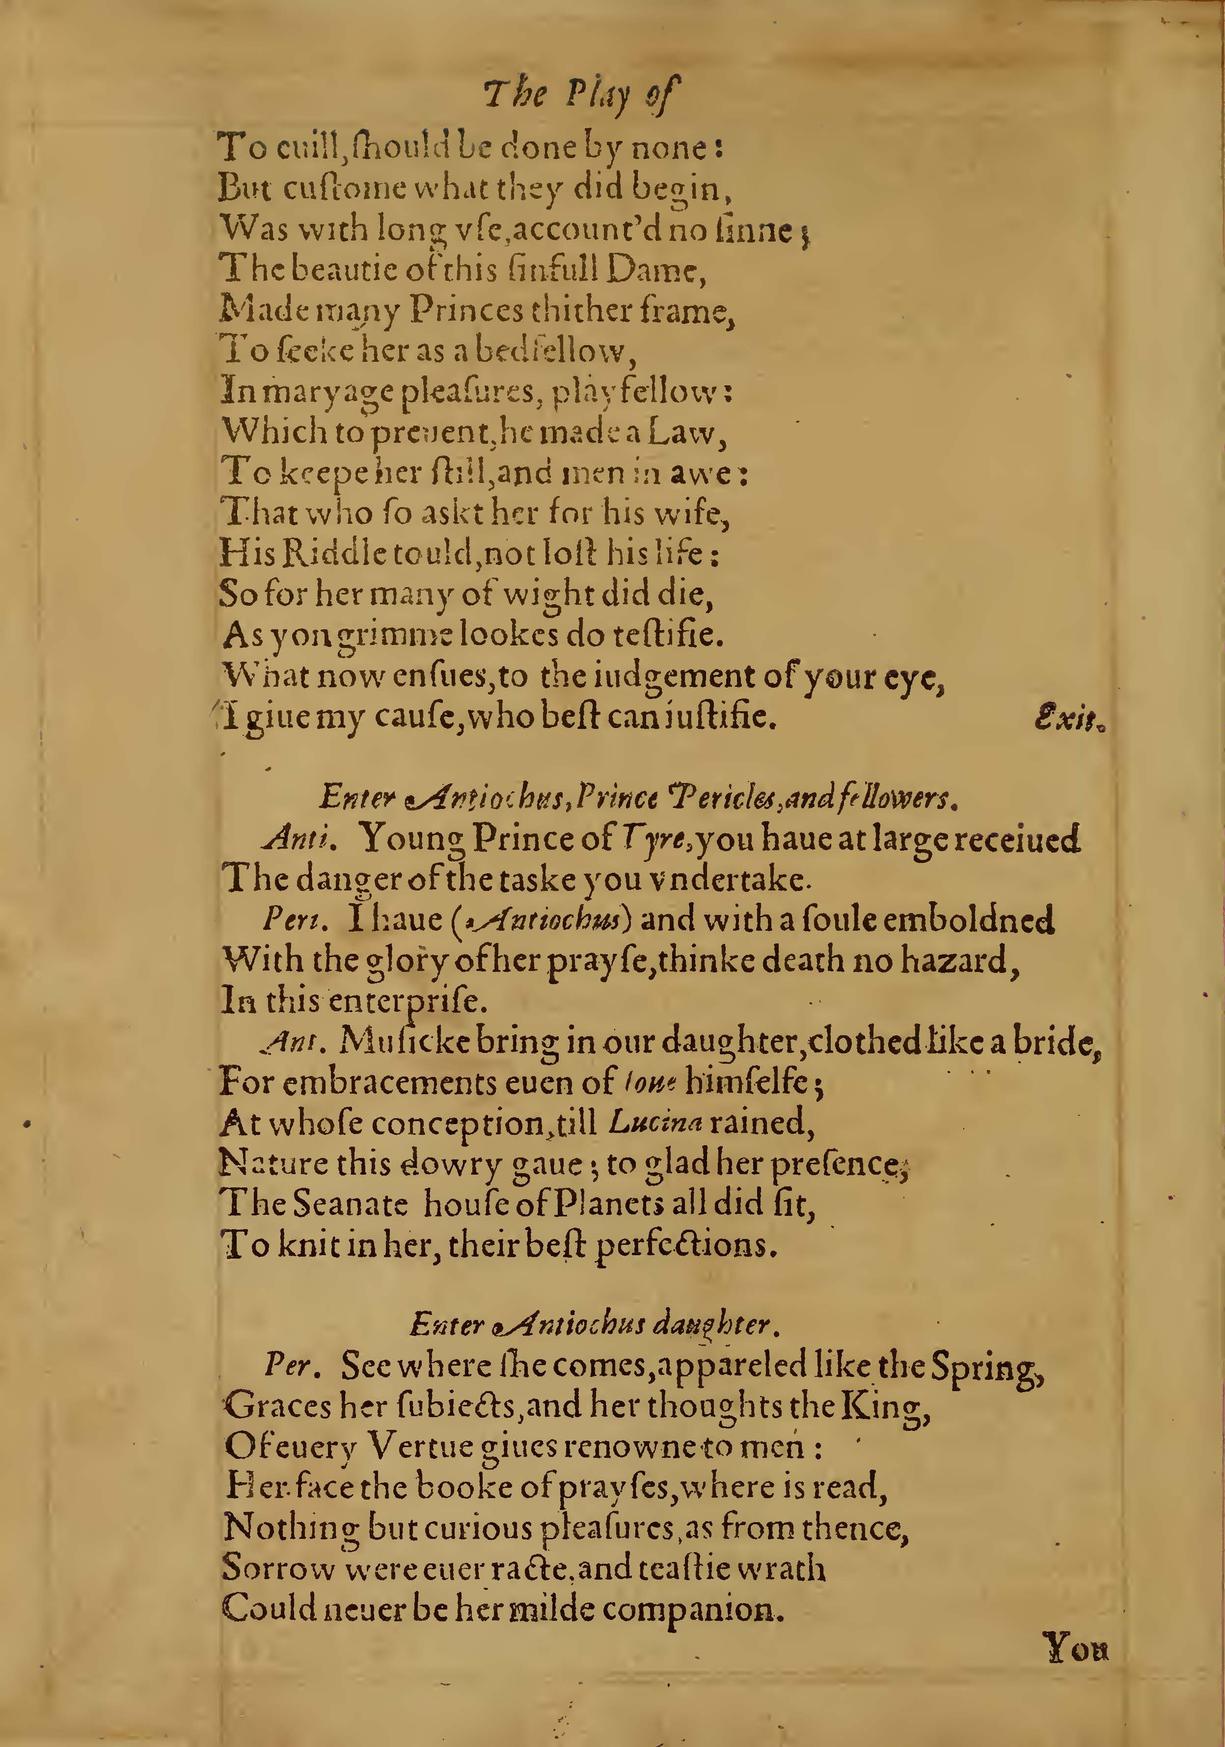 The Play of
To euill, ſhould be done by none:
But cuſtome what they did begin,
Was with long vſe, account'd no ſinne;
The beautie of this ſinfull Dame,
Made many Princes thither frame,
To ſeeke her as a bedfellow,
In maryage pleaſures, playfellow:
Which to preuent, he made a Law,
To keepe her ſtill, and men in awe:
That who ſo askt her for his wife,
His Riddle tould, not loſt his life:
So for her many of wight did die,
As yon grimme lookes do teſtifie.
What now enſues, to the iudgement of your eye,
I giue my cauſe, who beſt can iuſtifie. Exit.
Enter Antiochus, Prince Pericles, and followers.
Anti. Young Prince of Tyre, you haue at large receiued
The danger of the taske you vndertake.
Peri. I haue (Antiochus) and with a ſoule emboldned
With the glory of her prayſe, thinke death no hazard,
In this enterpriſe.
Ant. Muſicke bring in our daughter, clothed like a bride,
For embracements euen of Ioue himſelfe;
At whoſe conception, till Lucina rained,
Nature this dowry gaue; to glad her preſence,
The Seanate houſe of Planets all did ſit,
To knit in her, their beſt perfections.
Enter Antiochus daughter.
Per. See where ſhe comes, appareled like the Spring,
Graces her ſubiects, and her thoughts the King,
Of euery Vertue giues renowne to men:
Her face the booke of prayſes, where is read,
Nothing but curious pleaſures, as from thence,
Sorrow were euer racte, and teaſtie wrath
Could neuer be her milde companion.
You